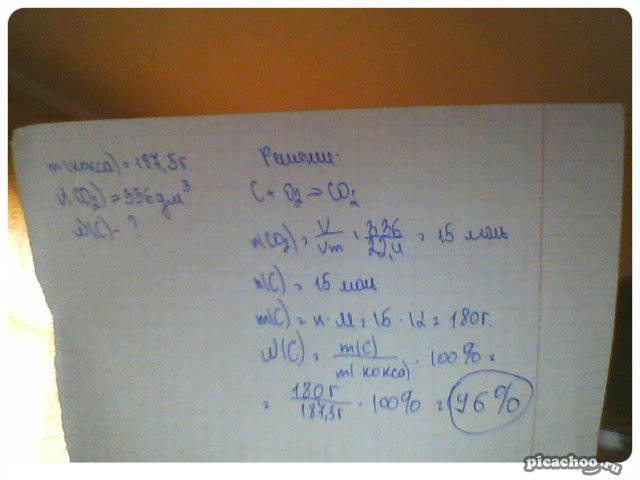 m(кокса) = 187,5г.
V(CO₂) = 336 дм³
W(C) - ?
Решение:
C + O₂ = CO₂
n(CO₂) = V/Vm = 336/22,4 = 15 моль
n(C) = 15 моль
m(C) = n · M = 15 · 12 = 180г.
W(C) = m(C)/m(кокса) · 100% =
= 180г/187,5г · 100% = 96%
picachoo.ru